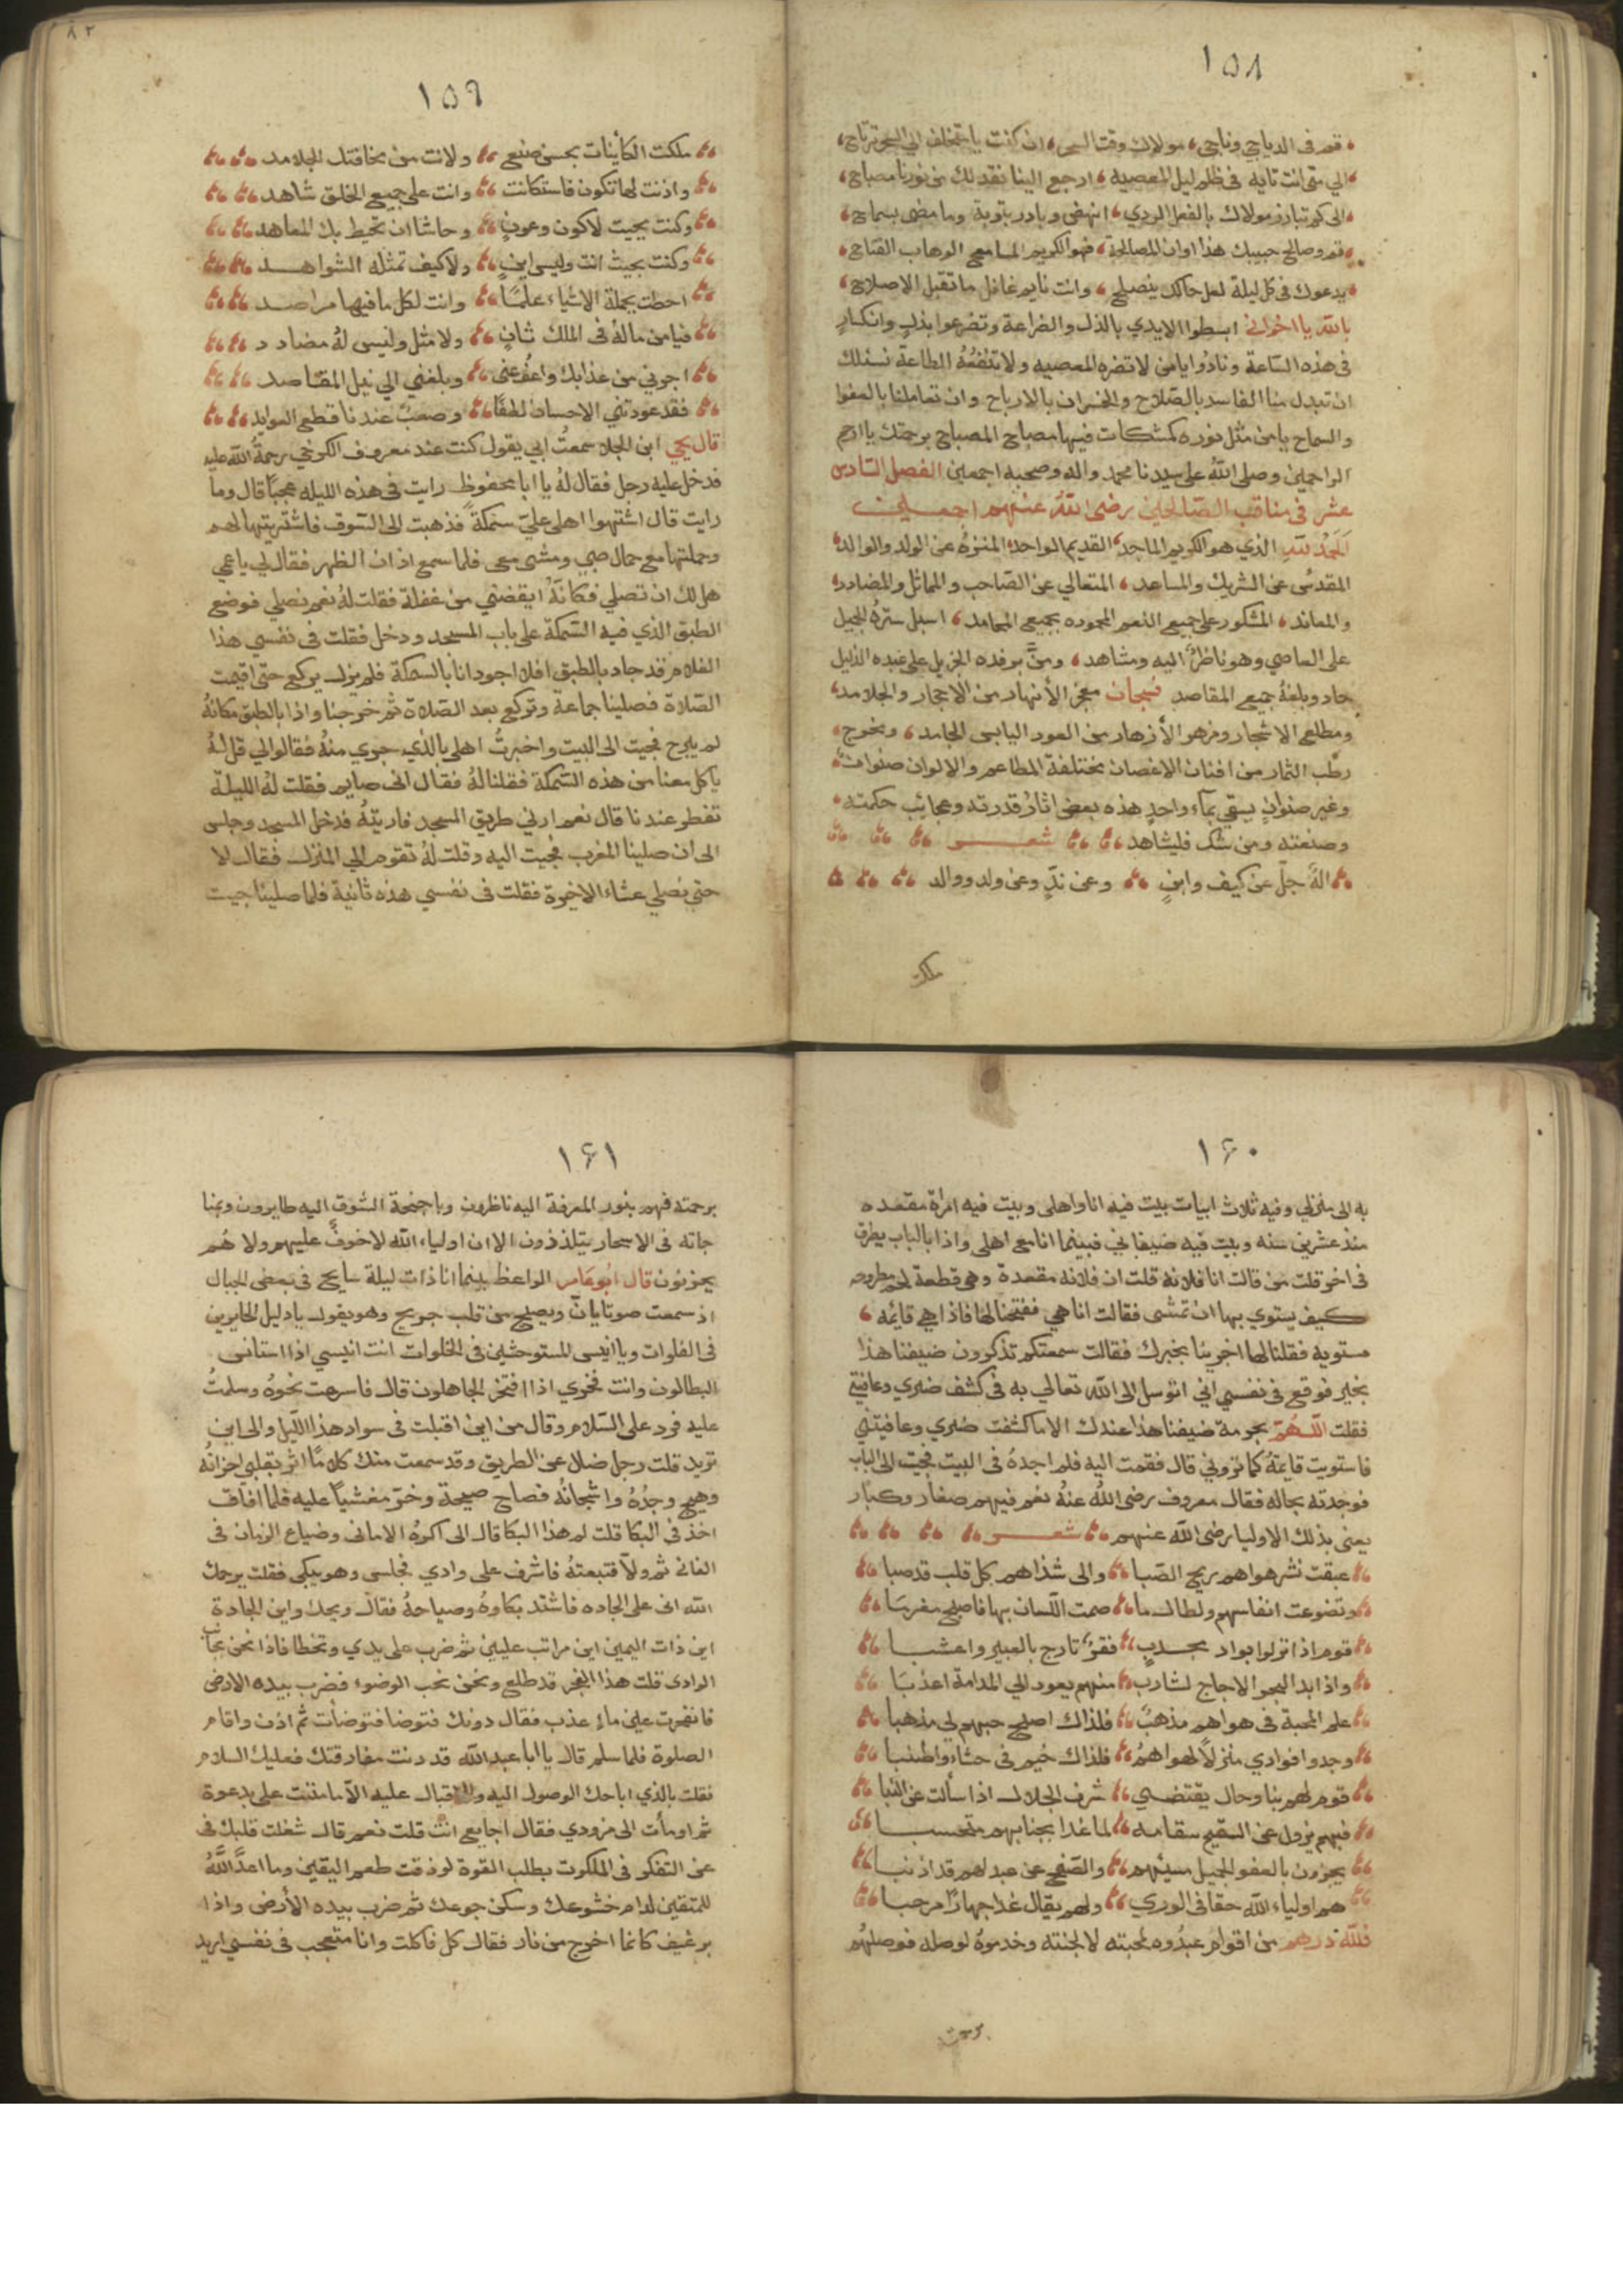 ١٥٨
قم في الدياجي وناجي، مولاك وقت السحر، ان كنت يا متخلف الي السحر ترتاح،
الي متى انت تايه في ظلم ليل المعصيه، ارجع الينا نقد لك من نورنا مصباح،
الى كم تبارز مولاك بالفعل الردي، انهض وبادر بتوبة وما مضى بسماح،
قم وصالح حبيبك هذا اوان المصالحة، فهو الكريم المسامح الوهاب الفتاح،
يدعوك في كل ليلة لعل حالك ينصلح، وانت نايم غافل ما تقبل الاصلاح،
بالله يا اخواني ابسطوا الايدي بالذل والضراعة وتضرعوا بذلٍ وانكسارٍ
في هذه الساعة ونادوا يا من لا تضره المعصيه ولا تنفعُهُ الطاعة نسئلك
ان تبدل منا الفاسد بالصلاح والخسران بالارباح وان تعاملنا بالعفوا
والسماح يا من مثل نوره كمشكات فيها مصباح المصباح برحمتك يا ارحم
الراحمين وصلى اللهُ على سيدنا محمد واله وصحبه اجمعين الفصل السادس
عشر في مناقب الصالحين رضى اللهُ عنهم اجمعين
الحمدُ للهِ الذي هو الكريم الماجد، القديم الواحد، المنزهُ عن الولد والوالد،
المقدسُ عن الشريك والمساعد، المتعالي عن الصاحب والمماثل والمضادد،
والمعاند، المشكور على جميع النعم المحموده بجميع المحامد، اسبل سترهُ الجميل
على العاصي وهو ناظرٌ اليه ومشاهد، ومنَّ برفده الجزيل على عبده الذليل
جاد وبلغهُ جميع المقاصد فسبحان مفجر الأنهار من الاحجار والجلامد،
ومطلع الاشجار ومزهر الأزهار من العود اليابس الجامد، ومخرج،
رطب الثمار من افنان الاغصان مختلفة المطاعم والالوان صنوانٌ،
وغير صنوانٍ يسقي بماءٍ واحدٍ هذه بعض اثارُ قدرته وعجائب حكمته،
وصنعته ومن شك فليشاهد شعر
الهٌ جلّ عن كيف واينٍ وعن ندّ وعن ولد ووالد
ملكت
٨٢
١٥٩
ملكت الكائنات بحسن صنع ولانت من مخافتك الجلامد
واذنت لها تكون فاستكانت وانت على جميع الخلق شاهد
وكنت بحيت لاكون وعونٍ وحاشا ان تحيط بك المعاهد
وكنت بحيث انت وليس اينٍ ولاكيف تمثله الشواهد
احطت بجملة الاشياء علمًا وانت لكل ما فيها مراصد
فيامن مالهُ في الملك ثانٍ ولا مثل وليس لهُ مضادد
اجرني من عذابك واعفُ عني وبلغني الي نيل المقاصد
فقد عودتني الاحسان لطفًا وصعبٌ عندنا قطع العوايد
قال يحي ابن الجلا سمعتُ ابي يقول كنت عند معروف الكرخي رحمةُ الله عليه
فدخل عليه رجل فقال لهُ يا ابا محفوظ رايت في هذه الليله عجبًا قال وما
رايت قال اشتهوا اهلى عليّ سمكةً فذهبت الى السوق فاشتريتها لهم
وحملتها مع حمال صبي ومشى معى فلما سمع اذان الظهر فقال لي يا عمي
هل لك ان تصلي فكانهُ ايقضني من غفلة فقلت لهُ نعم نصلي فوضع
الطبق الذي فيه السمكة على باب المسجد ودخل فقلت فى نفسي هذا
الغلام قد جاد بالطبق افلا اجود انا بالسمكة فلم يزل يركع حتى اقيمت
الصلاة فصلينا جماعة وتركع بعد الصلاة ثم خرجنا واذا بالطبق مكانهُ
لم يبرح فجيت الى البيت واخبرتُ اهلى بالذي جري منهُ فقالوا لي قل لهُ
ياكل معنا من هذه السمكة فقلنا لهُ فقال انى صايم فقلت له الليلة
تفطر عندنا قال نعم ارني طريق المسجد فاريتهُ فدخل المسجد وجلس
الى ان صلينا المغرب فجيت اليه وقلت لهُ تقوم الي المنزل فقال لا
حتى نصلي عشاء الاخيرة فقلت فى نفسي هذه ثانية فلما صلينا جيت
١٦٠
به الى منزلي وفيه ثلاث ابيات بيت فيه انا واهلى وبيت فيه امراة مقعده
منذ عشرين سنه وبيت فيه ضيفاني فبينما انا مع اهلى واذا بالباب يطرق
فى اخر قلت من قالت انا فلانة قلت ان فلانه مقعدة وهى قطعة لحم مطروحه
كيف يستوي بها ان تمشى فقالت انا هي ففتحنا لها فاذا هي قايمه،
مستويه فقلنا لها اخبرينا بخبرك فقالت سمعتكم تذكرون ضيفنا هذا
بخير فوقع فى نفسي اني اتوسل الى الله تعالي به فى كشف ضري وعافيتي
فقلت اللهُمّ بحرمة ضيفنا هذا عندك الا ما كشفت ضري وعافيتني
فاستويت قايمةُ كما تروني قال فقمت اليه فلم اجدهُ فى البيت فجيت الى الباب
فوجدته بحاله فقال معروف رضى اللهُ عنهُ نعم فيهم صغار وكبار
يعنى بذلك الاوليا رضى الله عنهم شعر
عبقت نشر هواهم بريح الصّبا والى شذاهم كل قلب قد صبا
وتضوعت انفاسهم ولطال ما صمت اللسان بها فاصبح مغربًا
قوم اذا نزلوا بواد مجدبٍ فقرٍ تارج بالعبير واعشبا
واذا بدا البحر الاجاج لشارب منهم يعود الي المدامة اعذبَا
علم المحبة فى هواهم مذهبٌ فلذاك اصبح حبهم لي مذهبا
وجدوا فوادي منزلاً لهواهمُ فلذاك خيم فى حشاء واطنبا
قوم لهم بنا وحال يقتضي شرف الجلال اذا سألت عن النبا
فبهم يزول عن السقيم سقامه لما غدا بجنابهم متحسبا
يجزون بالعفو الجميل مسيئهم والصفح عن عبد لهم قد اذنبا
هم اولياء الله حقا فى الوري ولهم يقال غدا جهارًا مرحبا
فلله درهم من اقوام عبدُوه لمحبته لا لجنته وخدموهُ لوصله فوصلهُم
برحمته
١٦١
برحمته فهم بنور المعرفة اليه ناظرون وباجنحة الشوق اليه طايرون وبمنا
جاته فى الاسحار يتلذذرون الا ان اولياء الله لا خوفٌ عليهم ولا هُم
يحزنون قال ابُوعَامر الواعظ بينما انا ذات ليلة سايح في بعض الجبال
اذ سمعت صوتا يانّ ويصيح من قلب جريح وهو يقول يا دليل الحايرين
فى الفلوات ويا انيس المستوحشين فى الخلوات انت انيسي اذا استانس
البطالون وانت فخري اذا افتخر الجاهلون قال فاسرعت نحوهُ وسلمتُ
عليه فرد على السلام وقال من اين اقبلت فى سواد هذا الليل والى اين
تريد قلت رجل ضلال عن الطريق وقد سمعت منك كلامًا اثر بقلبي احزانهُ
وهيج وجدُهُ واشجانُه فصاح صيحة وخرّ مغشيًا عليه فلما افاق
اخذ فى البكا قلت لم هذا البكا قال الى اكرهُ الامانى وضياع الزمان فى
الفانى ثم ولّا فتبعتهُ فاشرف على وادي فجلس وهو يبكى فقلت يرحمك
الله انى على الجاده فاشتد بكاوهُ وصياحهُ فقال ويحك واين الجادة
اين ذات اليمين اين مراتب عليين ثم ضرب على يدي وتخطا فاذا نحن بجانب
الوادى قلت هذا الفجر قد طلع ونحن نحب الوضوء فضرب بيده الارض
فانفجرت عليز ماء عذب فقال دونك فتوضا فتوضأت ثم اذن واقام
الصلوة فلما سلم قال يا ابا عبد الله قد دنت مفارقتك فعليك السلام
فقلت بالذي اباحك الوصول اليه والاقبال عليه الا ما مننت على بدعوة
ثم اومأت الى مزودي فقال اجايع انت قلت نعم قال شغلت قلبك فى
عن التفكر فى الملكوت بطلب القوة لو ذقت طعم اليقين وما اعدَّ اللهُ
للمتقين لدام خشوعك وسكن جوعك ثم ضرب بيده الأرض واذا
برغيف كانما اخرج من نار فقال كل فاكلت وانا متعجب فى نفسي اريد